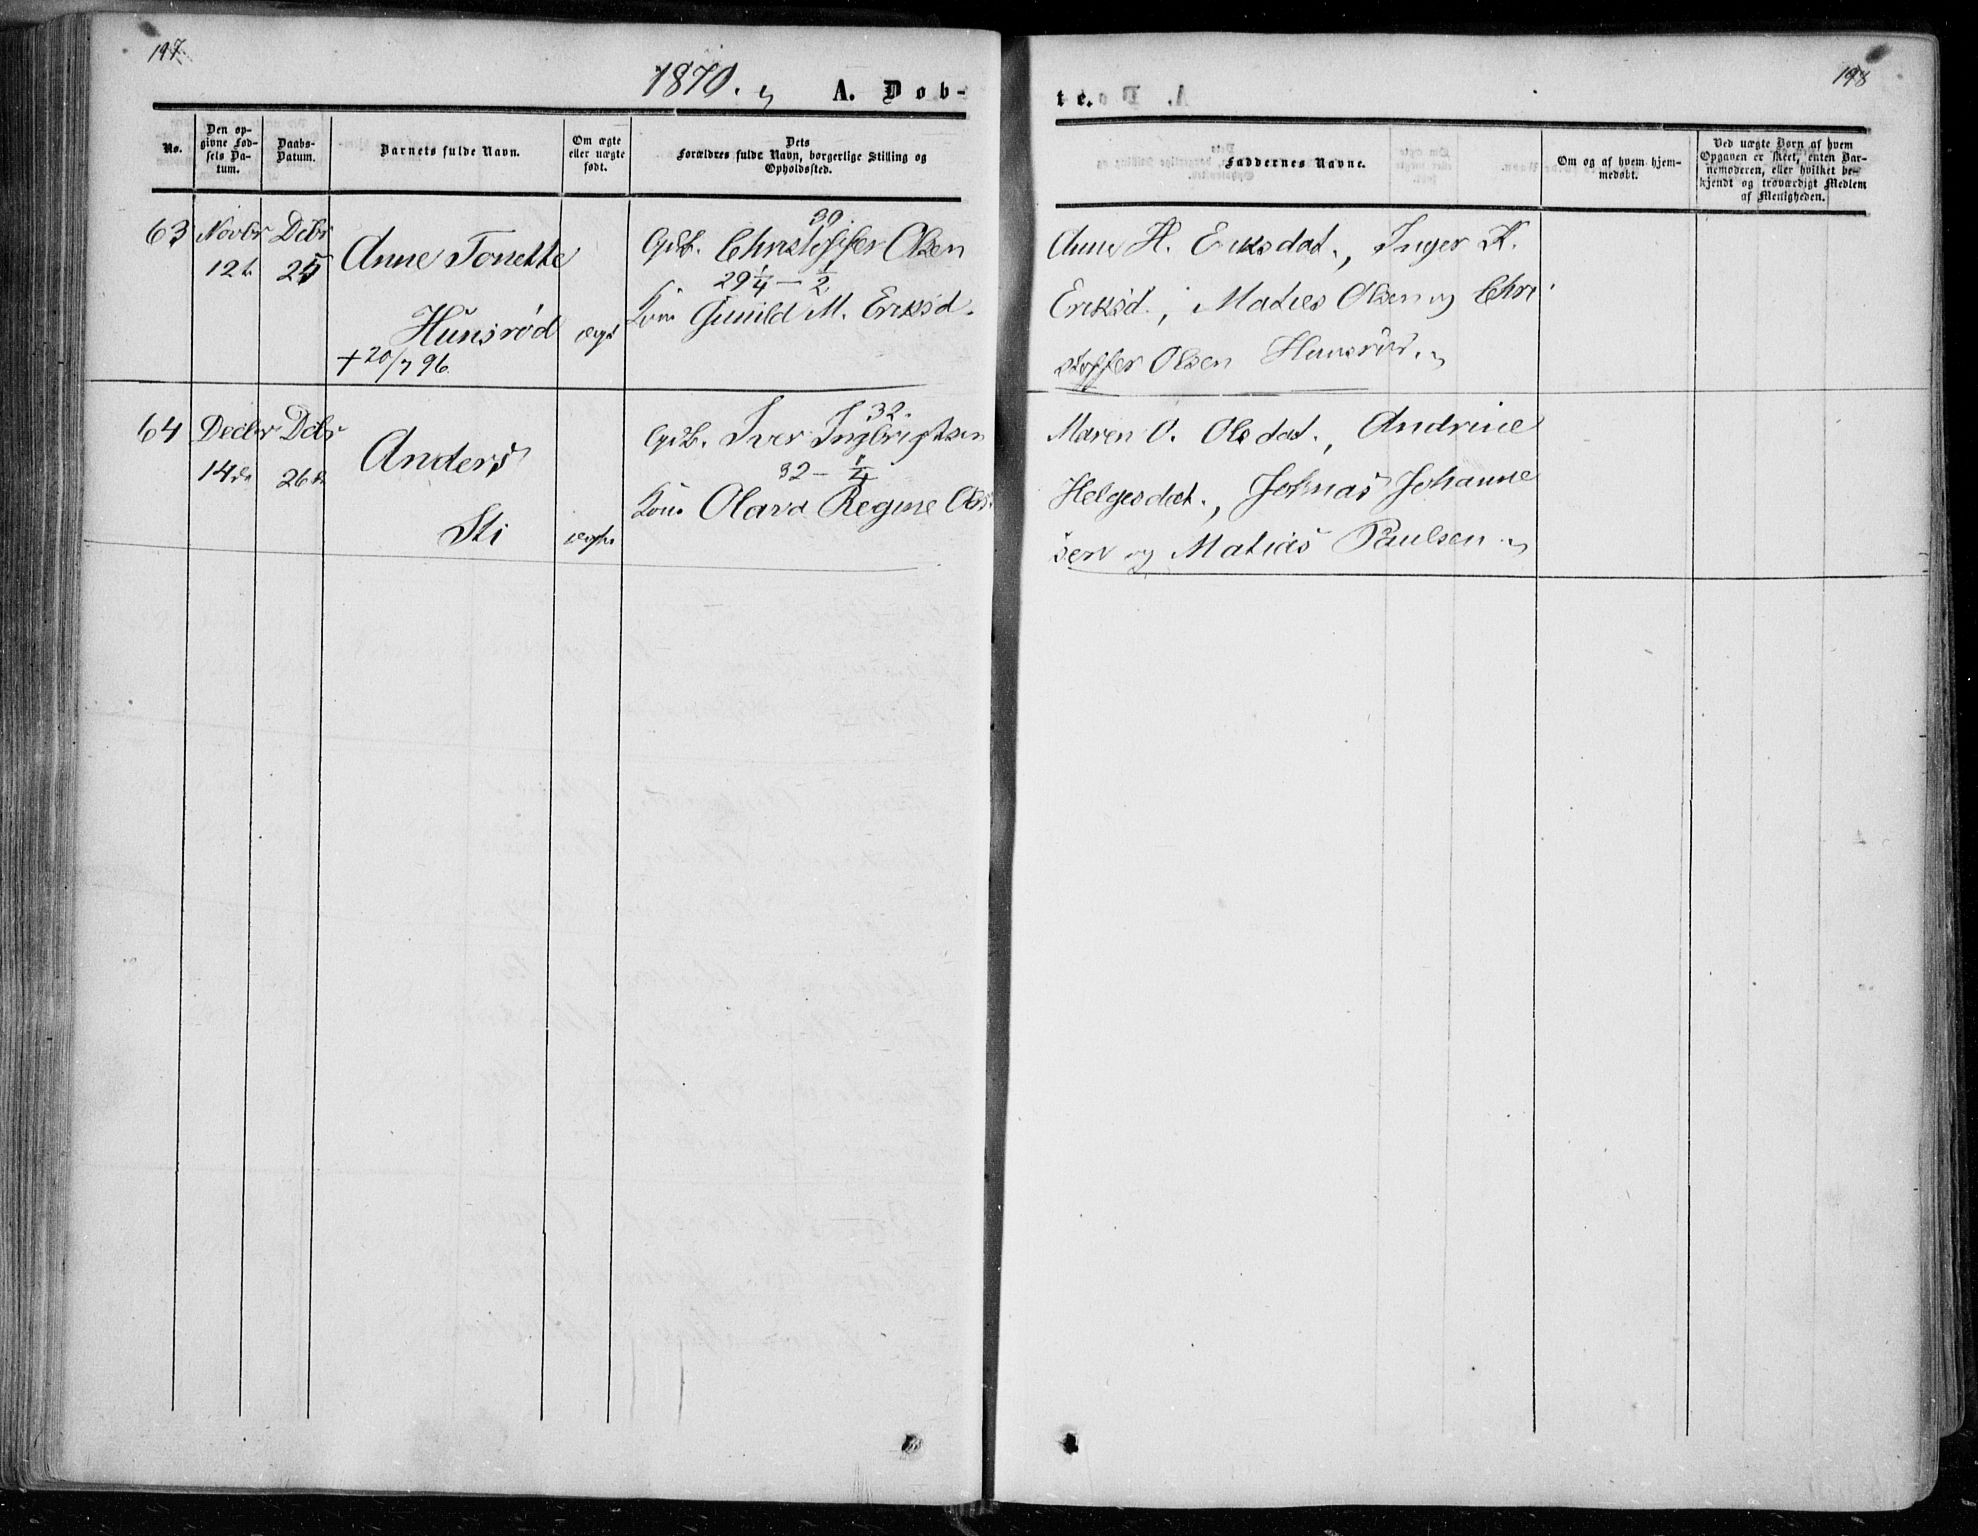 197.
1870.
A. Døb-
No.
Den op-
givne Fød-
sels Da-
tum.
Daabs-
Datum.
Barnets fulde Navn.
Om ægte
eller uægte
født.
Dets
Forældres fulde Navn, borgerlige Stilling og
Opholdssted.
63 Novbr Decbr
12te 25
Anne Tonette
Hunsrød
+ 20/7 96.
ægte
39
Gdb. Christoffer Olsen
29 1/4 – 1/2
Kone Gunild M. Eriksd.
64 Decbr Dcbr
14de 26de
Anders
Sti
ægte
32.
Gdb. Iver Ingbrigtsen
32 – 1/4
Kone Olava Regine Ols
198
te.
Faddernes Navne.
Om og af hvem hjem-
medøbt.
Ved uægte Børn af hvem
Opgaven er skeet, enten Bar-
nemoderen, eller hvilket be-
kjendt og troværdigt Medlem
af Menigheden.
Anne H. Eriksdat., Inger K.
Eriksd., Maties Olsen og Chri
stoffer Olsen Hunsrød.
Maren O. Olsdat., Andrine
Helgesdat., Johnas Johanne
sen og Matias Paulsen